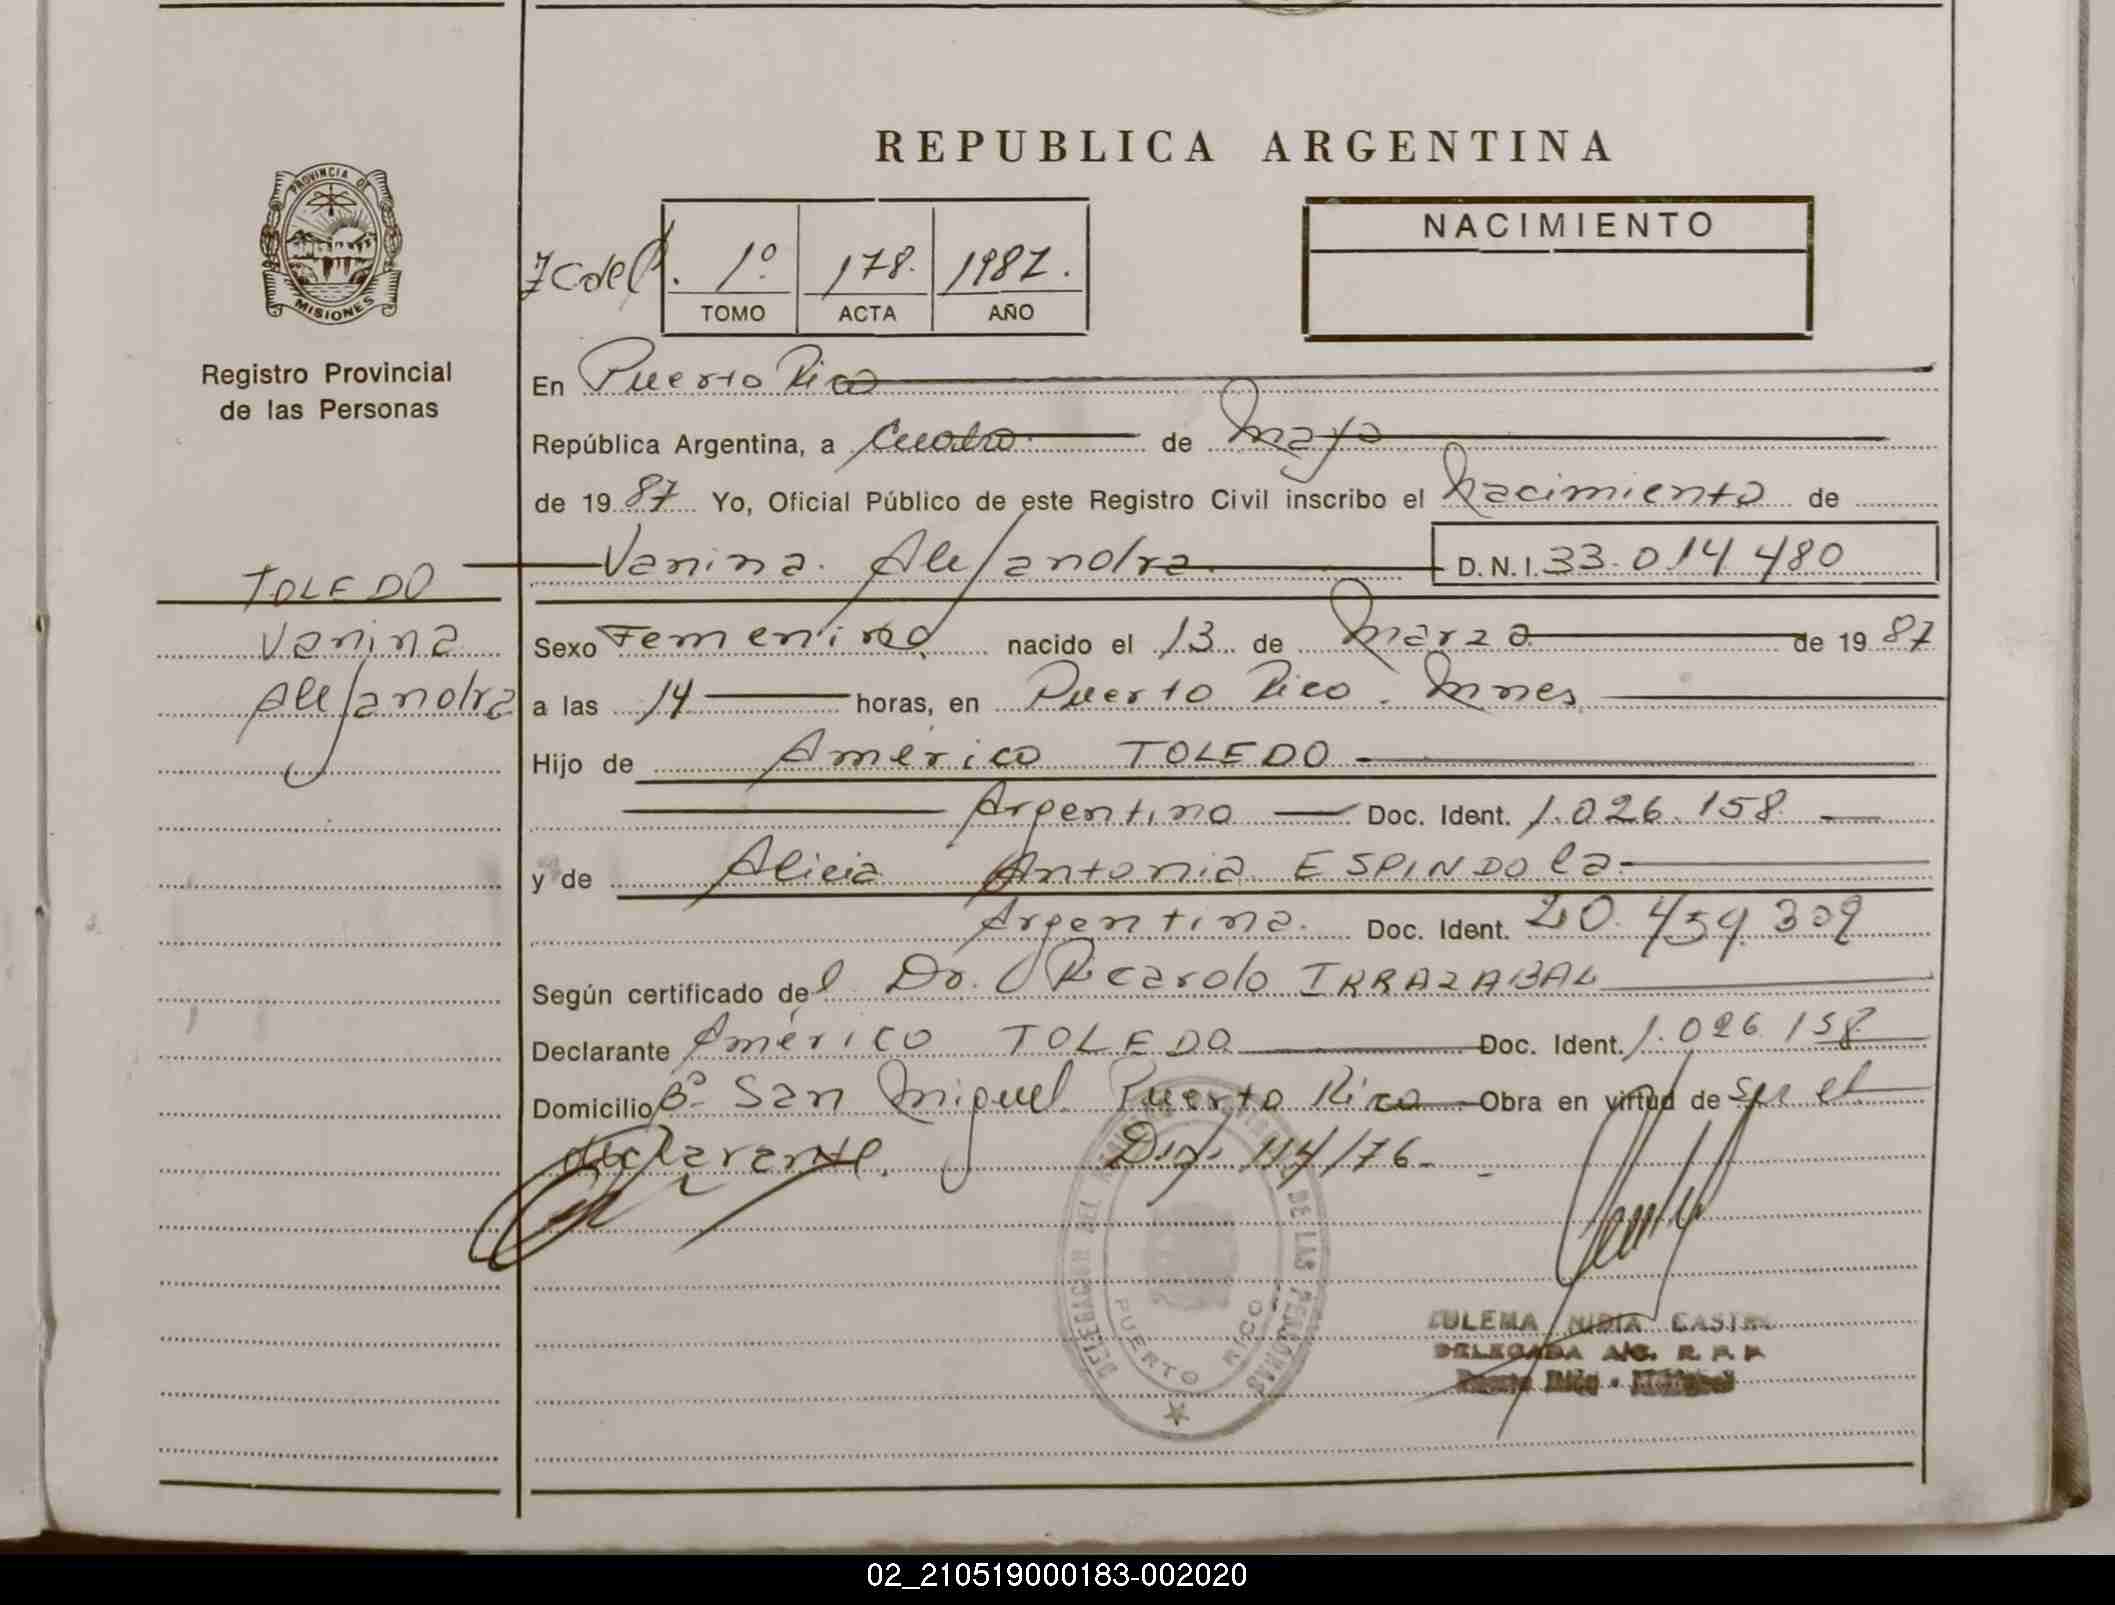 REPUBLICA ARGENTINA
PROVINCIA DE
MISIONES
Registro Provincial
de las Personas
NACIMIENTO
1º 178. 1987.
TOMO ACTA AÑO
En Puerto Rico
República Argentina, a Cuatro de Mayo
de 1987 Yo, Oficial Público de este Registro Civil inscribo el Nacimiento de
TOLEDO Vanina Alejandra D.N.I. 33.014.480
Vanina
Alejandra
Sexo Femenino nacido el 13 de Marzo de 1987
a las 14 horas, en Puerto Rico. Mnes
Hijo de Américo TOLEDO
Argentino Doc. Ident. 1.026.158
y de Alicia Antonia ESPINDOla
Argentina. Doc. Ident. 20.459.309
Según certificado del Dr. Ricardo IRRAZABAL
Declarante Américo TOLEDO Doc. Ident. 1.026.158
Domicilio Bº San Miguel Puerto Rico Obra en virtud de ser el
declarante. 114/76
DELEGACION DEL DE LAS PERSONAS
PUERTO RICO
ZULEMA NIDIA CASTRO
DELEGADA A/C. R. P. P.
Puerto Rico - Misiones
02_210519000183-002020